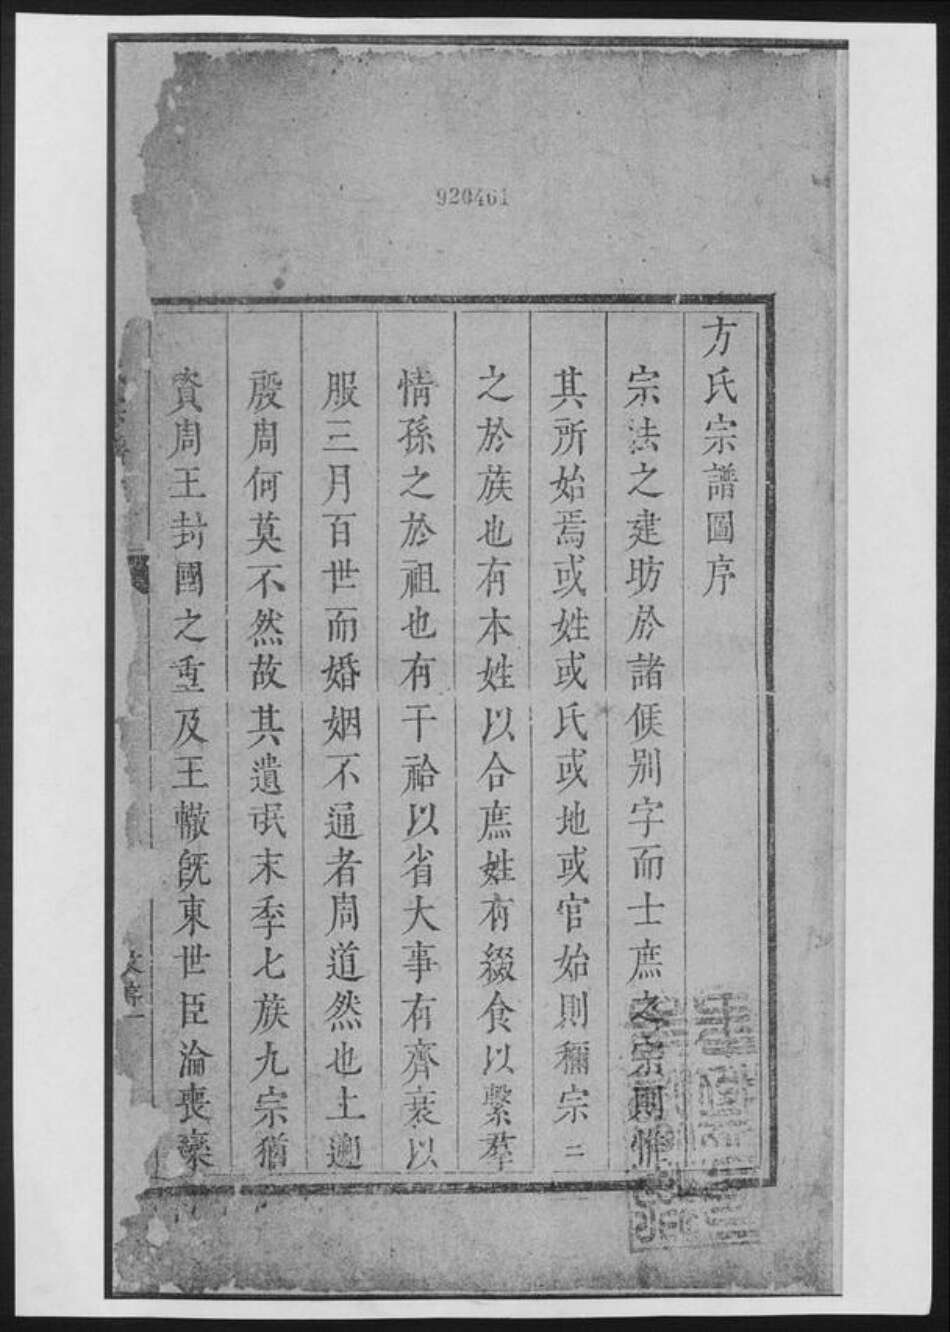 920461
方氏宗譜圖序
宗法之建昉於諸侯别字而士庶之宗則惟
其所始焉或姓或氏或地或官始則禰宗二
之於族也有本姓以合庶姓有綴食以繫羣
情孫之於祖也有干祫以省大事有齊衰以
服三月百世而婚姻不通者周道然也土遡
殷周何莫不然故其遺氓末季七族九宗猶
賚周王封國之重及王轍旣東世臣淪喪欒
文序一